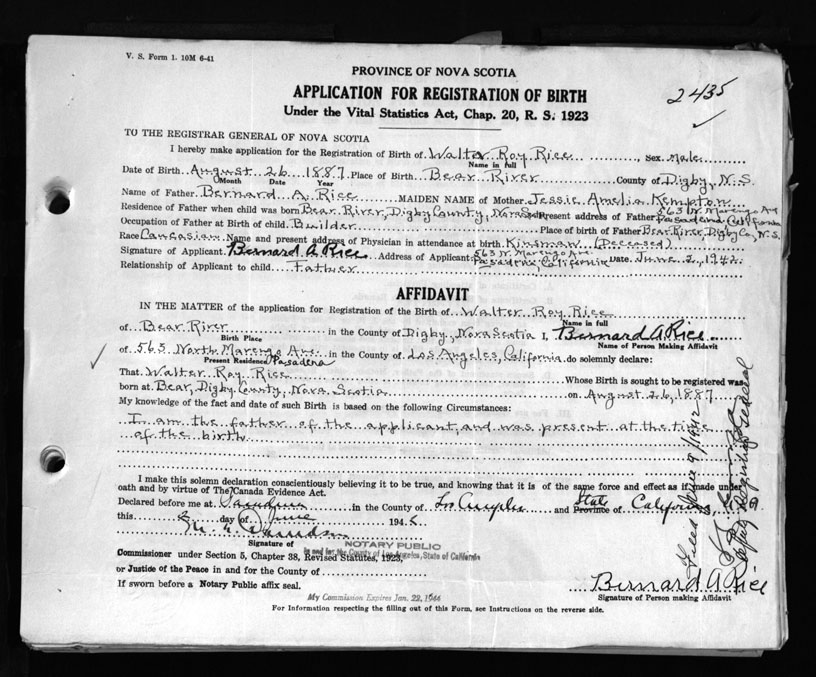 V. S. Form 1. 10M 6-41
PROVINCE OF NOVA SCOTIA
APPLICATION FOR REGISTRATION OF BIRTH
2435
Under the Vital Statistics Act, Chap. 20, R. S. 1923
TO THE REGISTRAR GENERAL OF NOVA SCOTIA
I hereby make application for the Registration of Birth of Walter Roy Rice Sex Male
Name in full
Date of Birth August 26 1887 Place of Birth Bear River County of Digby, N.S.
Month Date Year
Name of Father Bernard A. Rice MAIDEN NAME of Mother Jessie Amelia Kempton
Residence of Father when child was born Bear River, Digby County, Nova Scotia Present address of Father 563 N. Marengo Ave Pasadena California
Occupation of Father at Birth of child Builder Place of birth of Father Bear River, Digby Co, N.S.
Race Caucasian Name and present address of Physician in attendance at birth Kinsman (Deceased)
Signature of Applicant Bernard A Rice Address of Applicant 563 N. Marengo Ave. Pasadena, California Date June 2, 1942
Relationship of Applicant to child Father
AFFIDAVIT
IN THE MATTER of the application for Registration of the Birth of Walter Roy Rice
Name in full
of Bear River in the County of Digby, Nova Scotia I, Bernard A Rice
Birth Place Name of Person Making Affidavit
of 563 North Marengo Ave. Pasadena in the County of Los Angeles, California do solemnly declare:
Present Residence
That Walter Roy Rice Whose Birth is sought to be registered was
born at Bear, Digby County, Nova Scotia on August 26, 1887
My knowledge of the fact and date of such Birth is based on the following Circumstances:
I am the father of the applicant, and was present at the time
of the birth
I make this solemn declaration conscientiously believing it to be true, and knowing that it is of the same force and effect as if made under
oath and by virtue of The Canada Evidence Act.
Declared before me at Pasadena in the County of Los Angeles and State Province of California
this day of June 1942
Signature of
NOTARY PUBLIC
in and for the County of Los Angeles, State of California
Commissioner under Section 5, Chapter 38, Revised Statutes, 1923,
or Justice of the Peace in and for the County of
If sworn before a Notary Public affix seal.
Bernard A Rice
Signature of Person making Affidavit
My Commission Expires Jan. 22, 1944
For Information respecting the filling out of this Form, see Instructions on the reverse side.
Filed June 9/1942
Deputy Registrar General